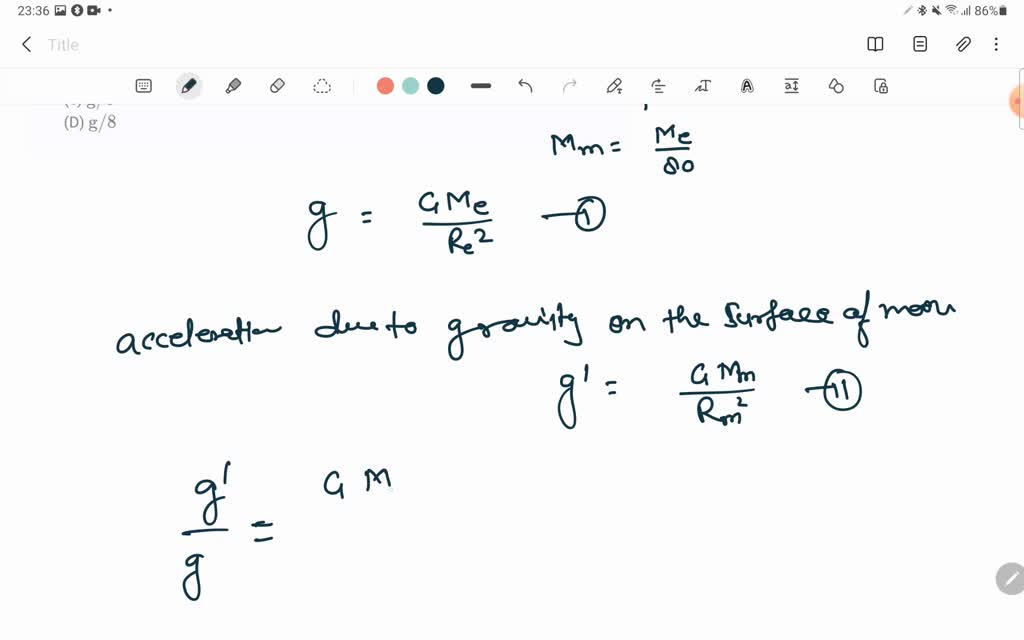 23:36 86%
Title
(D) g/8
Mm = Me/80
g = GMe/Re² —①
acceleration due to gravity on the surface of moon
g' = GMm/Rm² —⑪
g'/g = G M